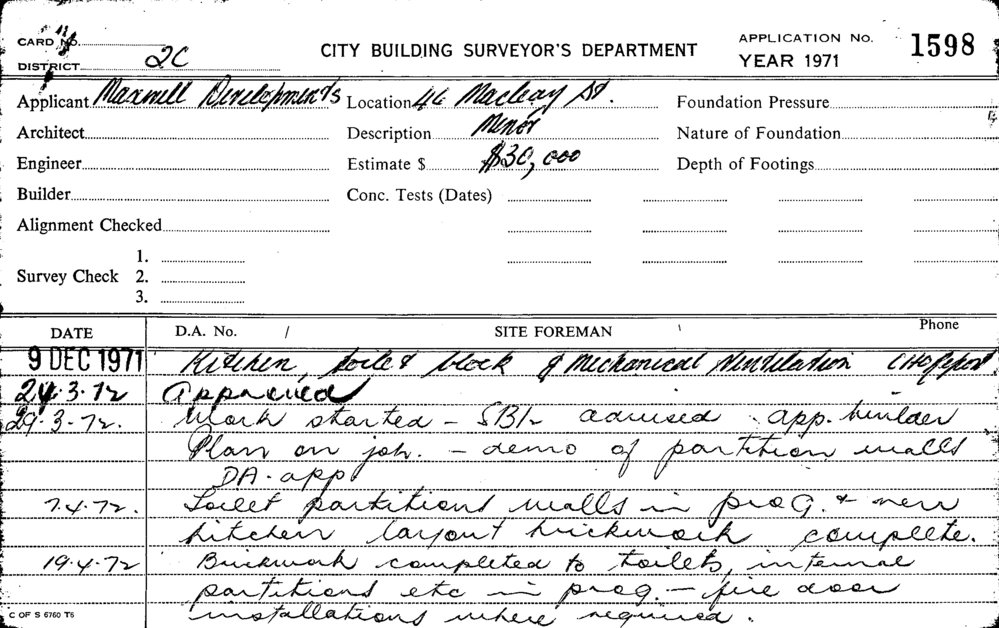 CARD No.
DISTRICT 2C
CITY BUILDING SURVEYOR'S DEPARTMENT
APPLICATION No. 1598
YEAR 1971
Applicant Maxwell Developments Location 46 Macleay St. Foundation Pressure
Architect Description Minor Nature of Foundation
Engineer Estimate $ $30,000 Depth of Footings
Builder Conc. Tests (Dates)
Alignment Checked
1.
Survey Check 2.
3.
DATE D.A. No. / SITE FOREMAN Phone
9 DEC 1971 Kitchen, toilet block & Mechanical Ventilation
24.3.72 Approved
29.3.72. Work started - advised app. builder
Plan on job. - demo of partition walls
DA. app
7.4.72. Toilet partitions walls in prog. & new
kitchen layout brickwork complete.
19.4.72 Brickwork completed to toilets, internal
partitions etc in prog. - fire door
C OF S 6760 T6 installations where required.